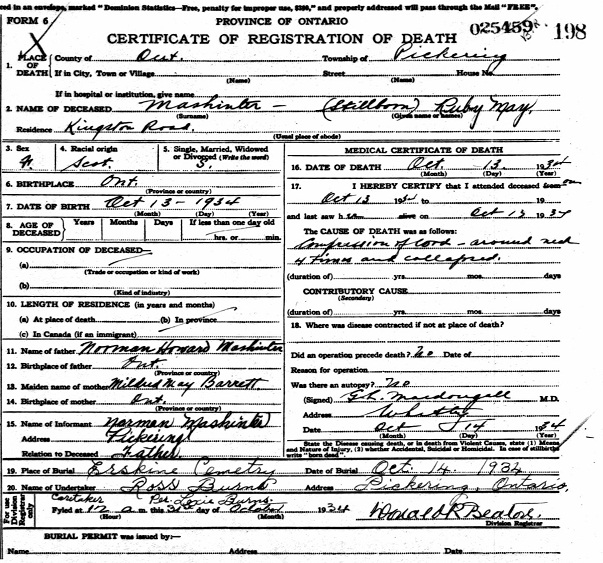 ced in an envelope, marked "Dominion Statistics—Free, penalty for improper use, $300," and property addressed will pass through the Mail "FREE".
FORM 6 PROVINCE OF ONTARIO 025459 198
CERTIFICATE OF REGISTRATION OF DEATH
1. PLACE OF DEATH County of Ont. Township of Pickering
If in City, Town or Village (Name) Street (Name) House No.
If in hospital or institution, give name
2. NAME OF DECEASED Mashinter - (Stillborn) Ruby May.
(Surname) (Given name or names)
Residence Kingston Road.
(Usual place of abode)
3. Sex 4. Racial origin Scot. 5. Single, Married, Widowed or Divorced (Write the word) S.
6. BIRTHPLACE Ont.
(Province or country)
7. DATE OF BIRTH Oct 13 - 1934
(Month) (Day) (Year)
8. AGE OF DECEASED Years Months Days If less than one day old
hrs. or min.
9. OCCUPATION OF DECEASED
(a)
(Trade or occupation or kind of work)
(b)
(Kind of industry)
10. LENGTH OF RESIDENCE (in years and months)
(a) At place of death (b) In province
(c) In Canada (if an immigrant)
11. Name of father Norman Howard Mashinter
12. Birthplace of father Ont.
(Province or country)
13. Maiden name of mother Mildred May Barrett
14. Birthplace of mother Ont.
(Province or country)
15. Name of Informant Norman Mashinter
Address Pickering
Relation to Deceased Father.
MEDICAL CERTIFICATE OF DEATH
16. DATE OF DEATH Oct. 13. 1934
(Month) (Day) (Year)
17. I HEREBY CERTIFY that I attended deceased from on
Oct 13 1934 to 19
and last saw h alive on Oct 13 1934
The CAUSE OF DEATH was as follows:
Compression of cord - around neck
4 times and collapsed.
(duration of) yrs. mos. days
CONTRIBUTORY CAUSE
(Secondary)
(duration of) yrs. mos. days
18. Where was disease contracted if not at place of death?
Did an operation precede death? No Date of
Reason for operation
Was there an autopsy? No
(Signed) Macdougall M.D.
Address Whitby
Date Oct 14 1934
(Month) (Day) (Year)
State the Disease causing death, or in death from Violent Causes, state (1) Means and Nature of Injury, (2) whether Accidental, Suicidal or Homicidal. In case of stillbirths write "born dead".
19. Place of Burial Erskine Cemetry Date of Burial Oct. 14. 1934
20. Name of Undertaker Ross Burns Address Pickering, Ontario.
Caretaker Per. Louis Burns.
For use Division Registrar only
Fyled at 12 a.m. this 31 day of October 1934 Donald R Beaton.
(Hour) (Month) Division Registrar
BURIAL PERMIT was issued by:—
Name Address Date